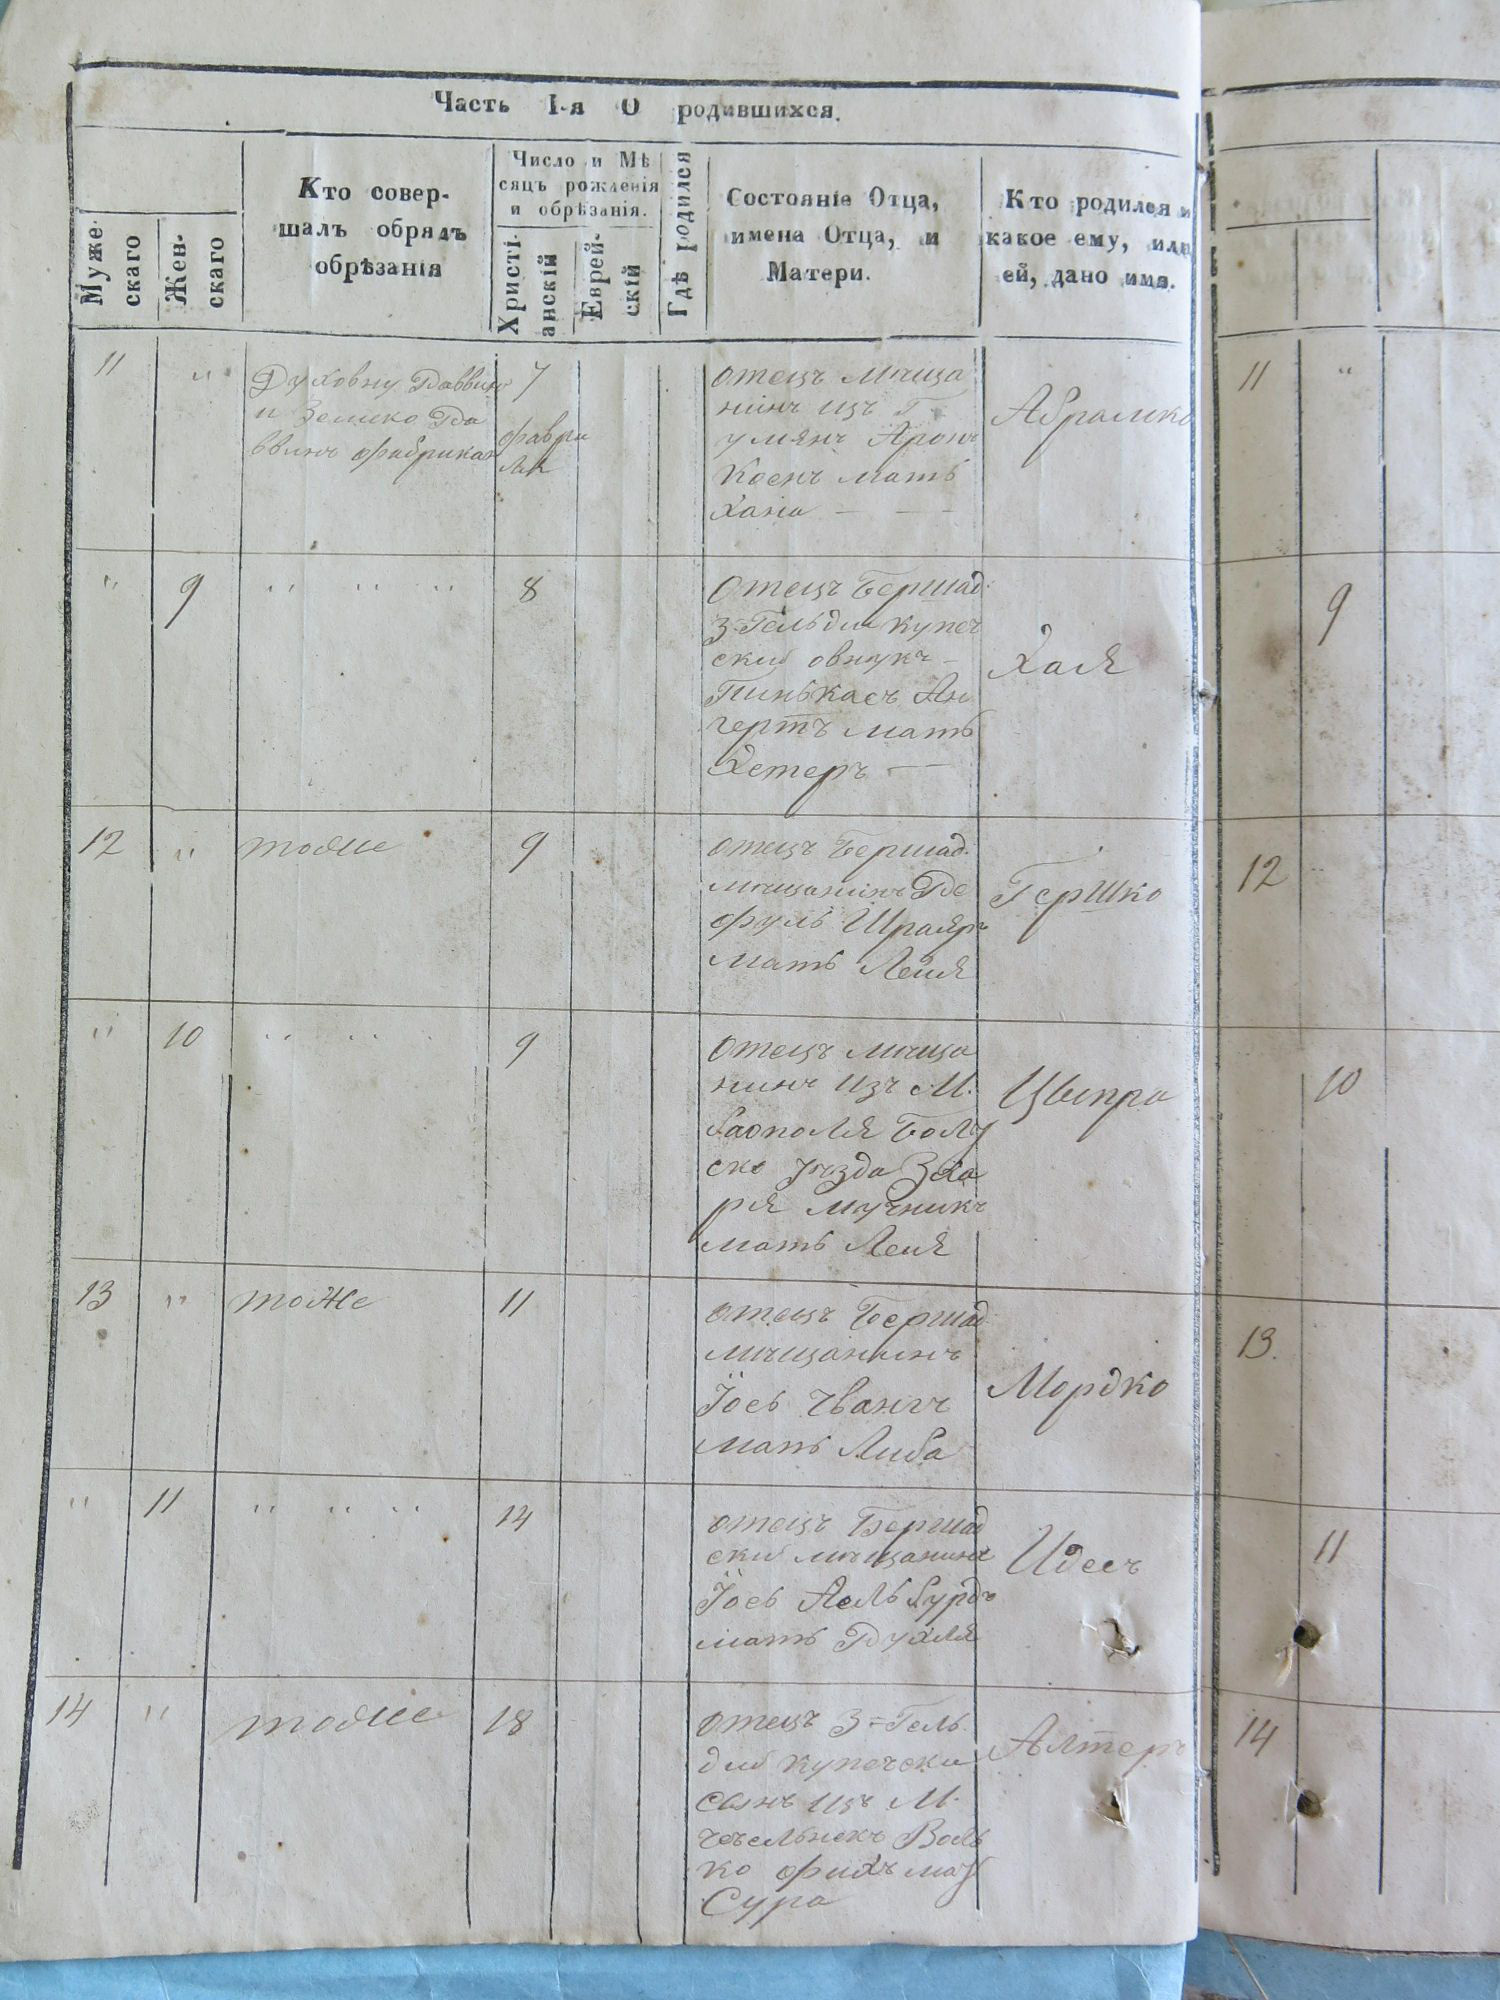 Часть I-я О родившихся.
Муже-
скаго
Жен-
скаго
Кто совер-
шалъ обрядъ
обрѣзанія
Число и Мѣ
сяцъ рожденія
и обрѣзанія.
Христі-
анскій
Еврей-
скій
Гдѣ родился
Состояніе Отца,
имена Отца, и
Матери.
Кто родился и
какое ему, или
ей, дано имя.
11
"
Духовну Раввин
и Зелико Ра
ввинъ фабрикан
7
февра
ля
отецъ мѣща
нинъ изъ Г
умянъ Аронъ
Коенъ мать
Хана - - -
Абрамко
11
"
"
9
" " "
8
Отецъ Бершад:
3-Гельдии купеч
скій внукъ -
Пинькасъ Ан
гертъ мать
Эстеръ -
Хая
9
12
"
тоже
9
отецъ Бершад.
мѣщанинъ Ре
фуль Шраеръ
мать Лея
Гершко
12
"
10
" " "
9
Отецъ мѣща
нинъ изъ М.
Балт
ско уѣзда Заха
рія Мучникъ
мать Лея
Ципра
10
13
"
тоже
11
отецъ Бершад
мѣщанинъ
Іось
мать Либа
Мордко
13.
"
11
" " "
14
отецъ Бершад
скій мѣщанинъ
Іось
мать Рухля
Идесъ
11
14
"
тоже
18
отецъ 3=Гель
дій купечски
сынъ изъ М.
Чечельнекъ Воль
ко Фихъ мать
Сура
Алтеръ
14